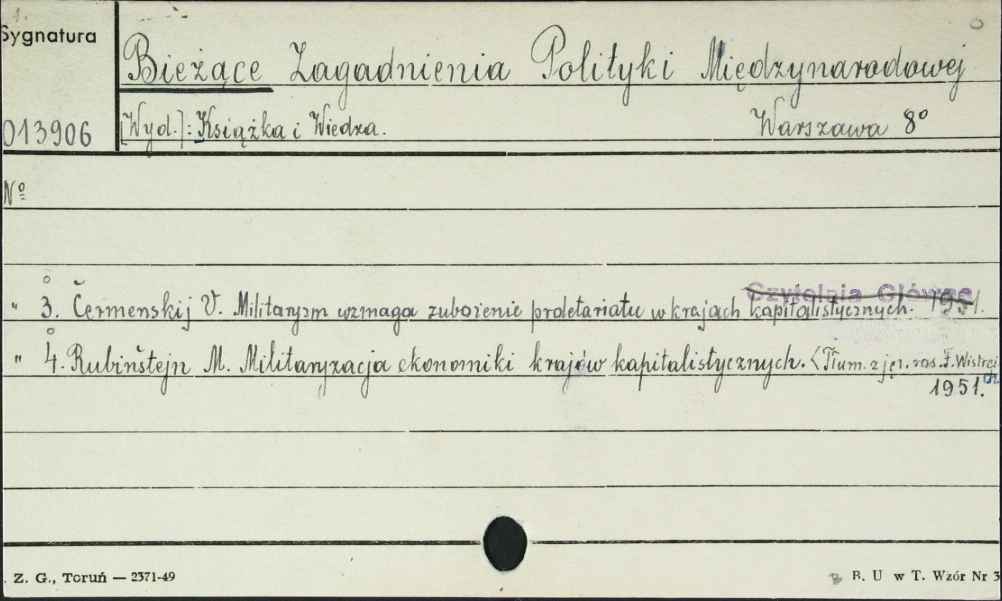 Sygnatura
Bieżące Zagadnienia Polityki Międzynarodowej
013906
[Wyd.]: Książka i Wiedza. Warszawa 8°
Nº
" 3. Čermenskij V. Militaryzm wzmaga zubożenie proletariatu w krajach kapitalistycznych. 1951.
Czytelnia Główna
" 4. Rubinštejn M. Militaryzacja ekonomiki krajów kapitalistycznych. <Tłum. z jęz. ros. F. Wistreich
1951.
Z. G., Toruń — 2371-49
B. U w T. Wzór Nr 3